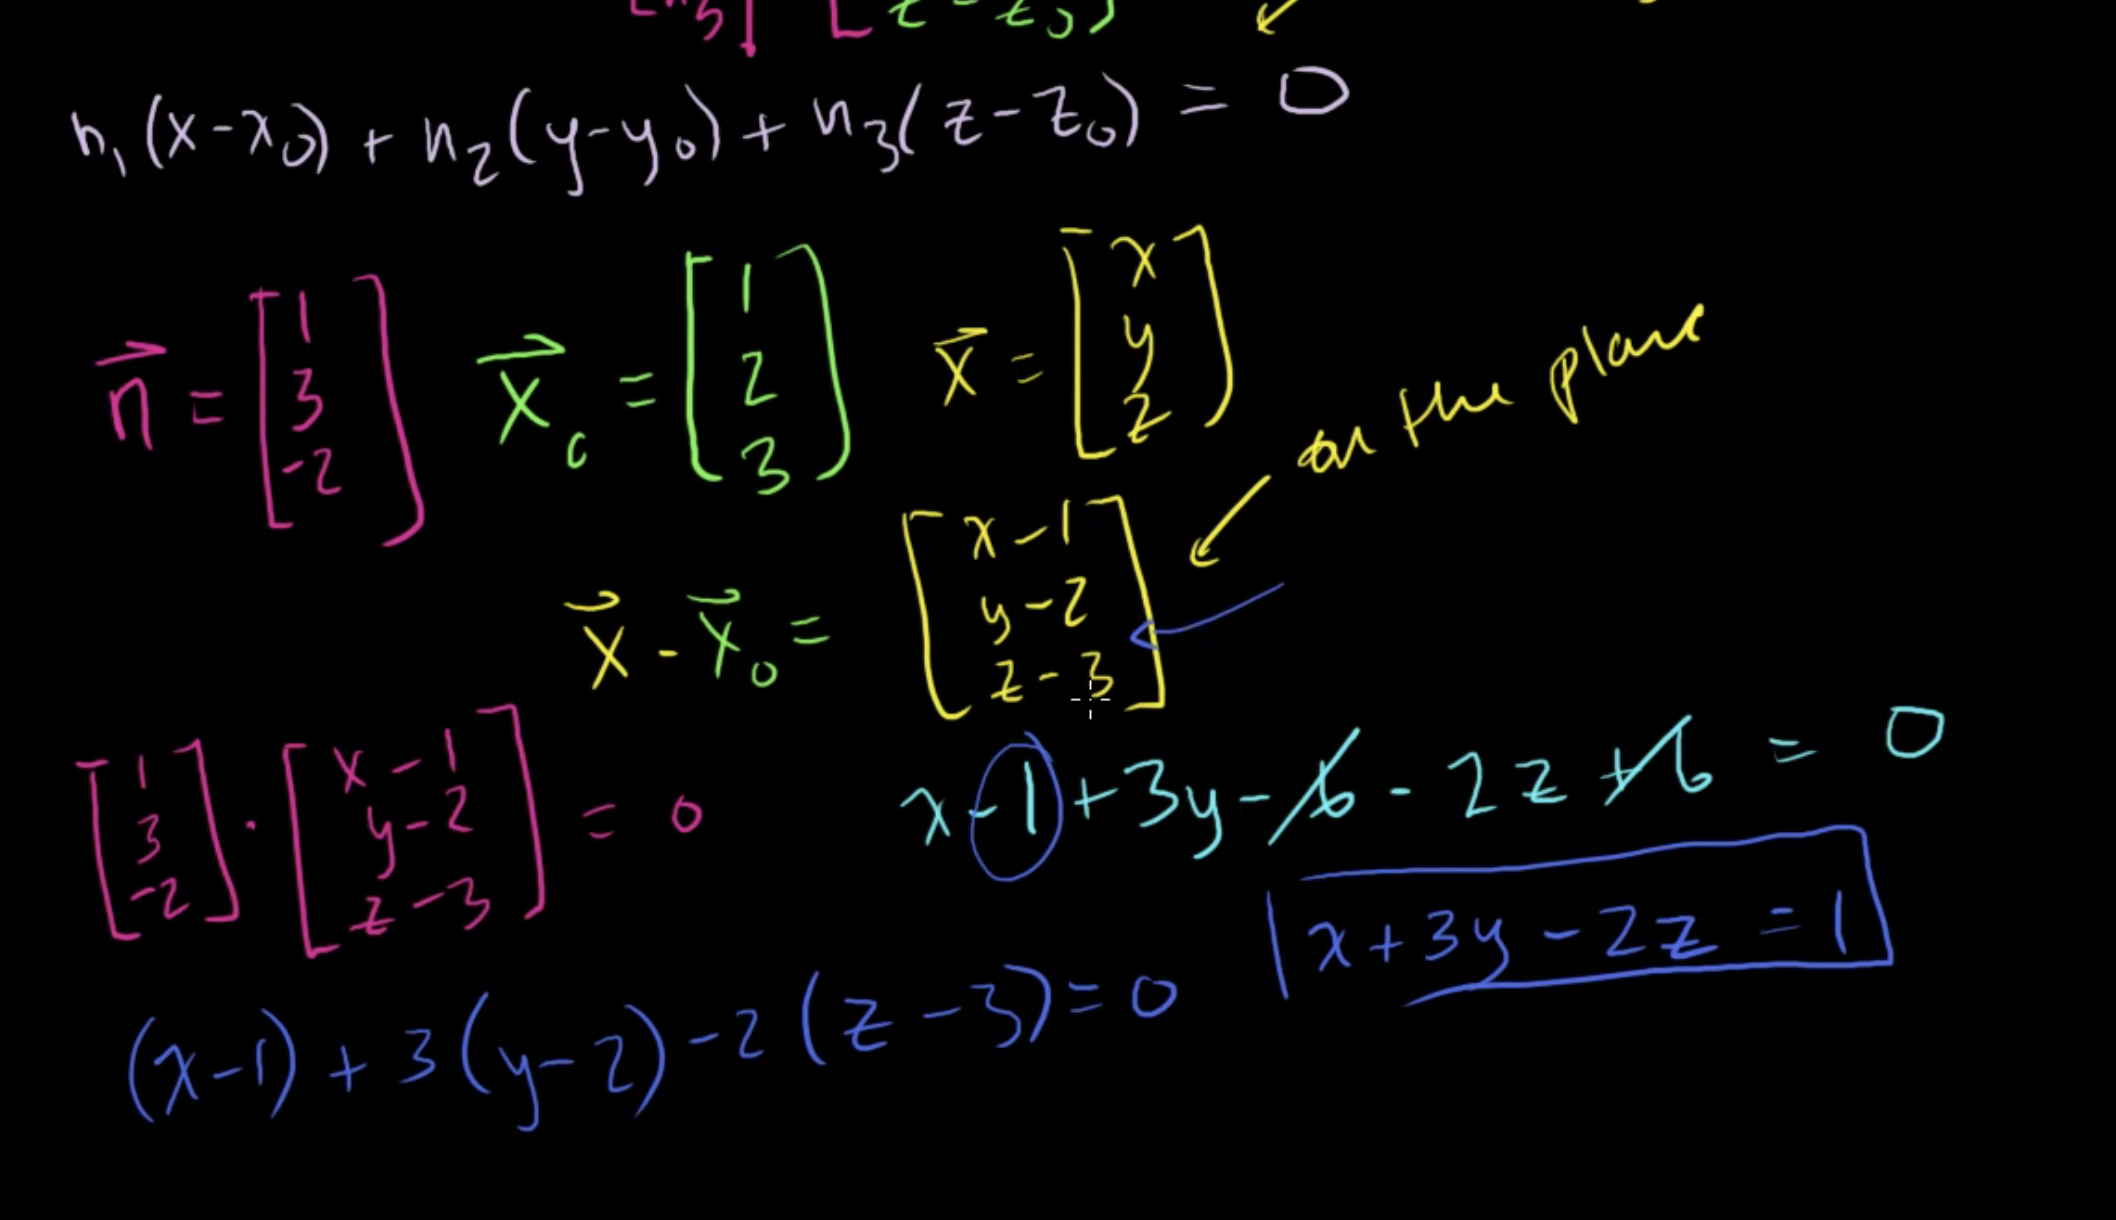 [n₃] [z - z₀]
n₁(x-x₀) + n₂(y-y₀) + n₃(z-z₀) = 0
n⃗ = [1 3 -2] x⃗₀ = [1 2 3] x⃗ = [x y z]
on the plane
x⃗ - x⃗₀ = [x-1 y-2 z-3]
[1 3 -2] · [x-1 y-2 z-3] = 0
x-1+3y-6-2z+6 = 0
x+3y-2z=1
(x-1)+3(y-2)-2(z-3)=0